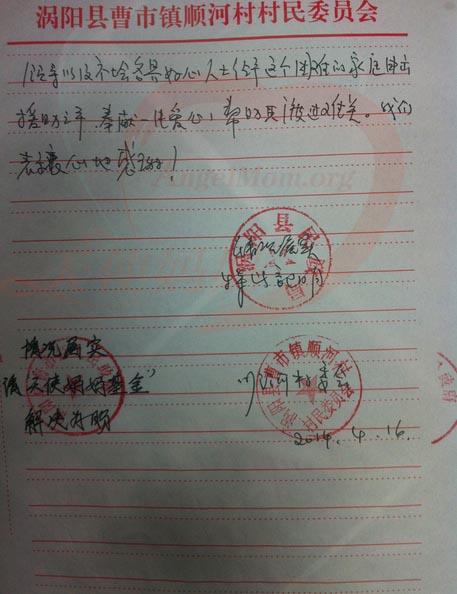 涡阳县曹市镇顺河村村民委员会
领导以及社会各界好心人士给予这个困难的家庭伸出
援助之手,奉献一片爱心,帮助其渡过难关。我们
表示衷心地感谢!
AngelMom.org
情况属实
涡阳县民政局
情况属实
请"天使妈妈基金"
解决为盼
涡阳县曹市镇顺河村
村民委员会
顺河村委会
2014.4.16.